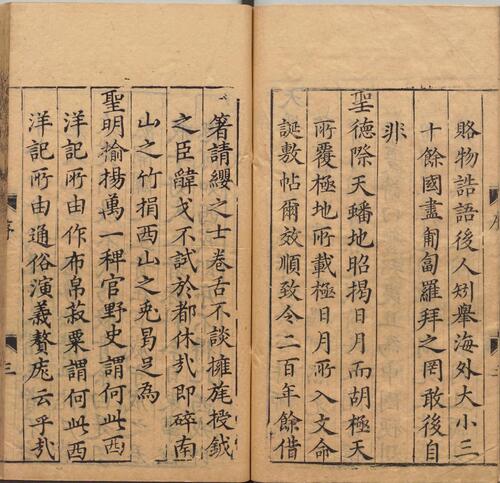 賂物誥語後人矧舉海外大小三
十餘國盡匍匐羅拜之罔敢後自
非
聖德際天蟠地昭揭日月而胡極天
所覆極地所載極日月所入文命
誕敷帖爾效順致令二百年餘借
箸請纓之士卷舌不談擁旄授鉞
之臣韔戈不試於都休哉即碎南
山之竹捐西山之兎曷足為
聖明揄揚萬一稗官野史謂何此西
洋記所由作布帛菽粟謂何此西
洋記所由通俗演義贅疣云乎哉
序
三